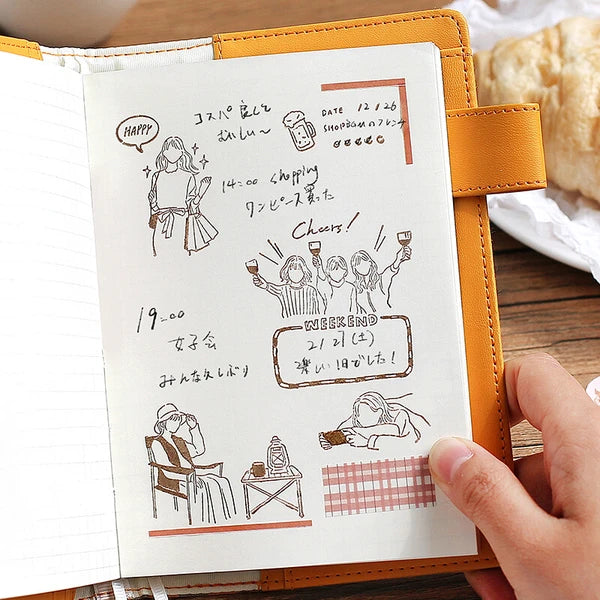 コスパ良くて
おいしい〜
DATE 12/26
SHOP BGMのフレンチ
HAPPY
14:00 shopping
ワンピース買った
Cheers!
19:00
女子会
みんな久しぶり
WEEKEND
2/27(土)
楽しい1日でした!